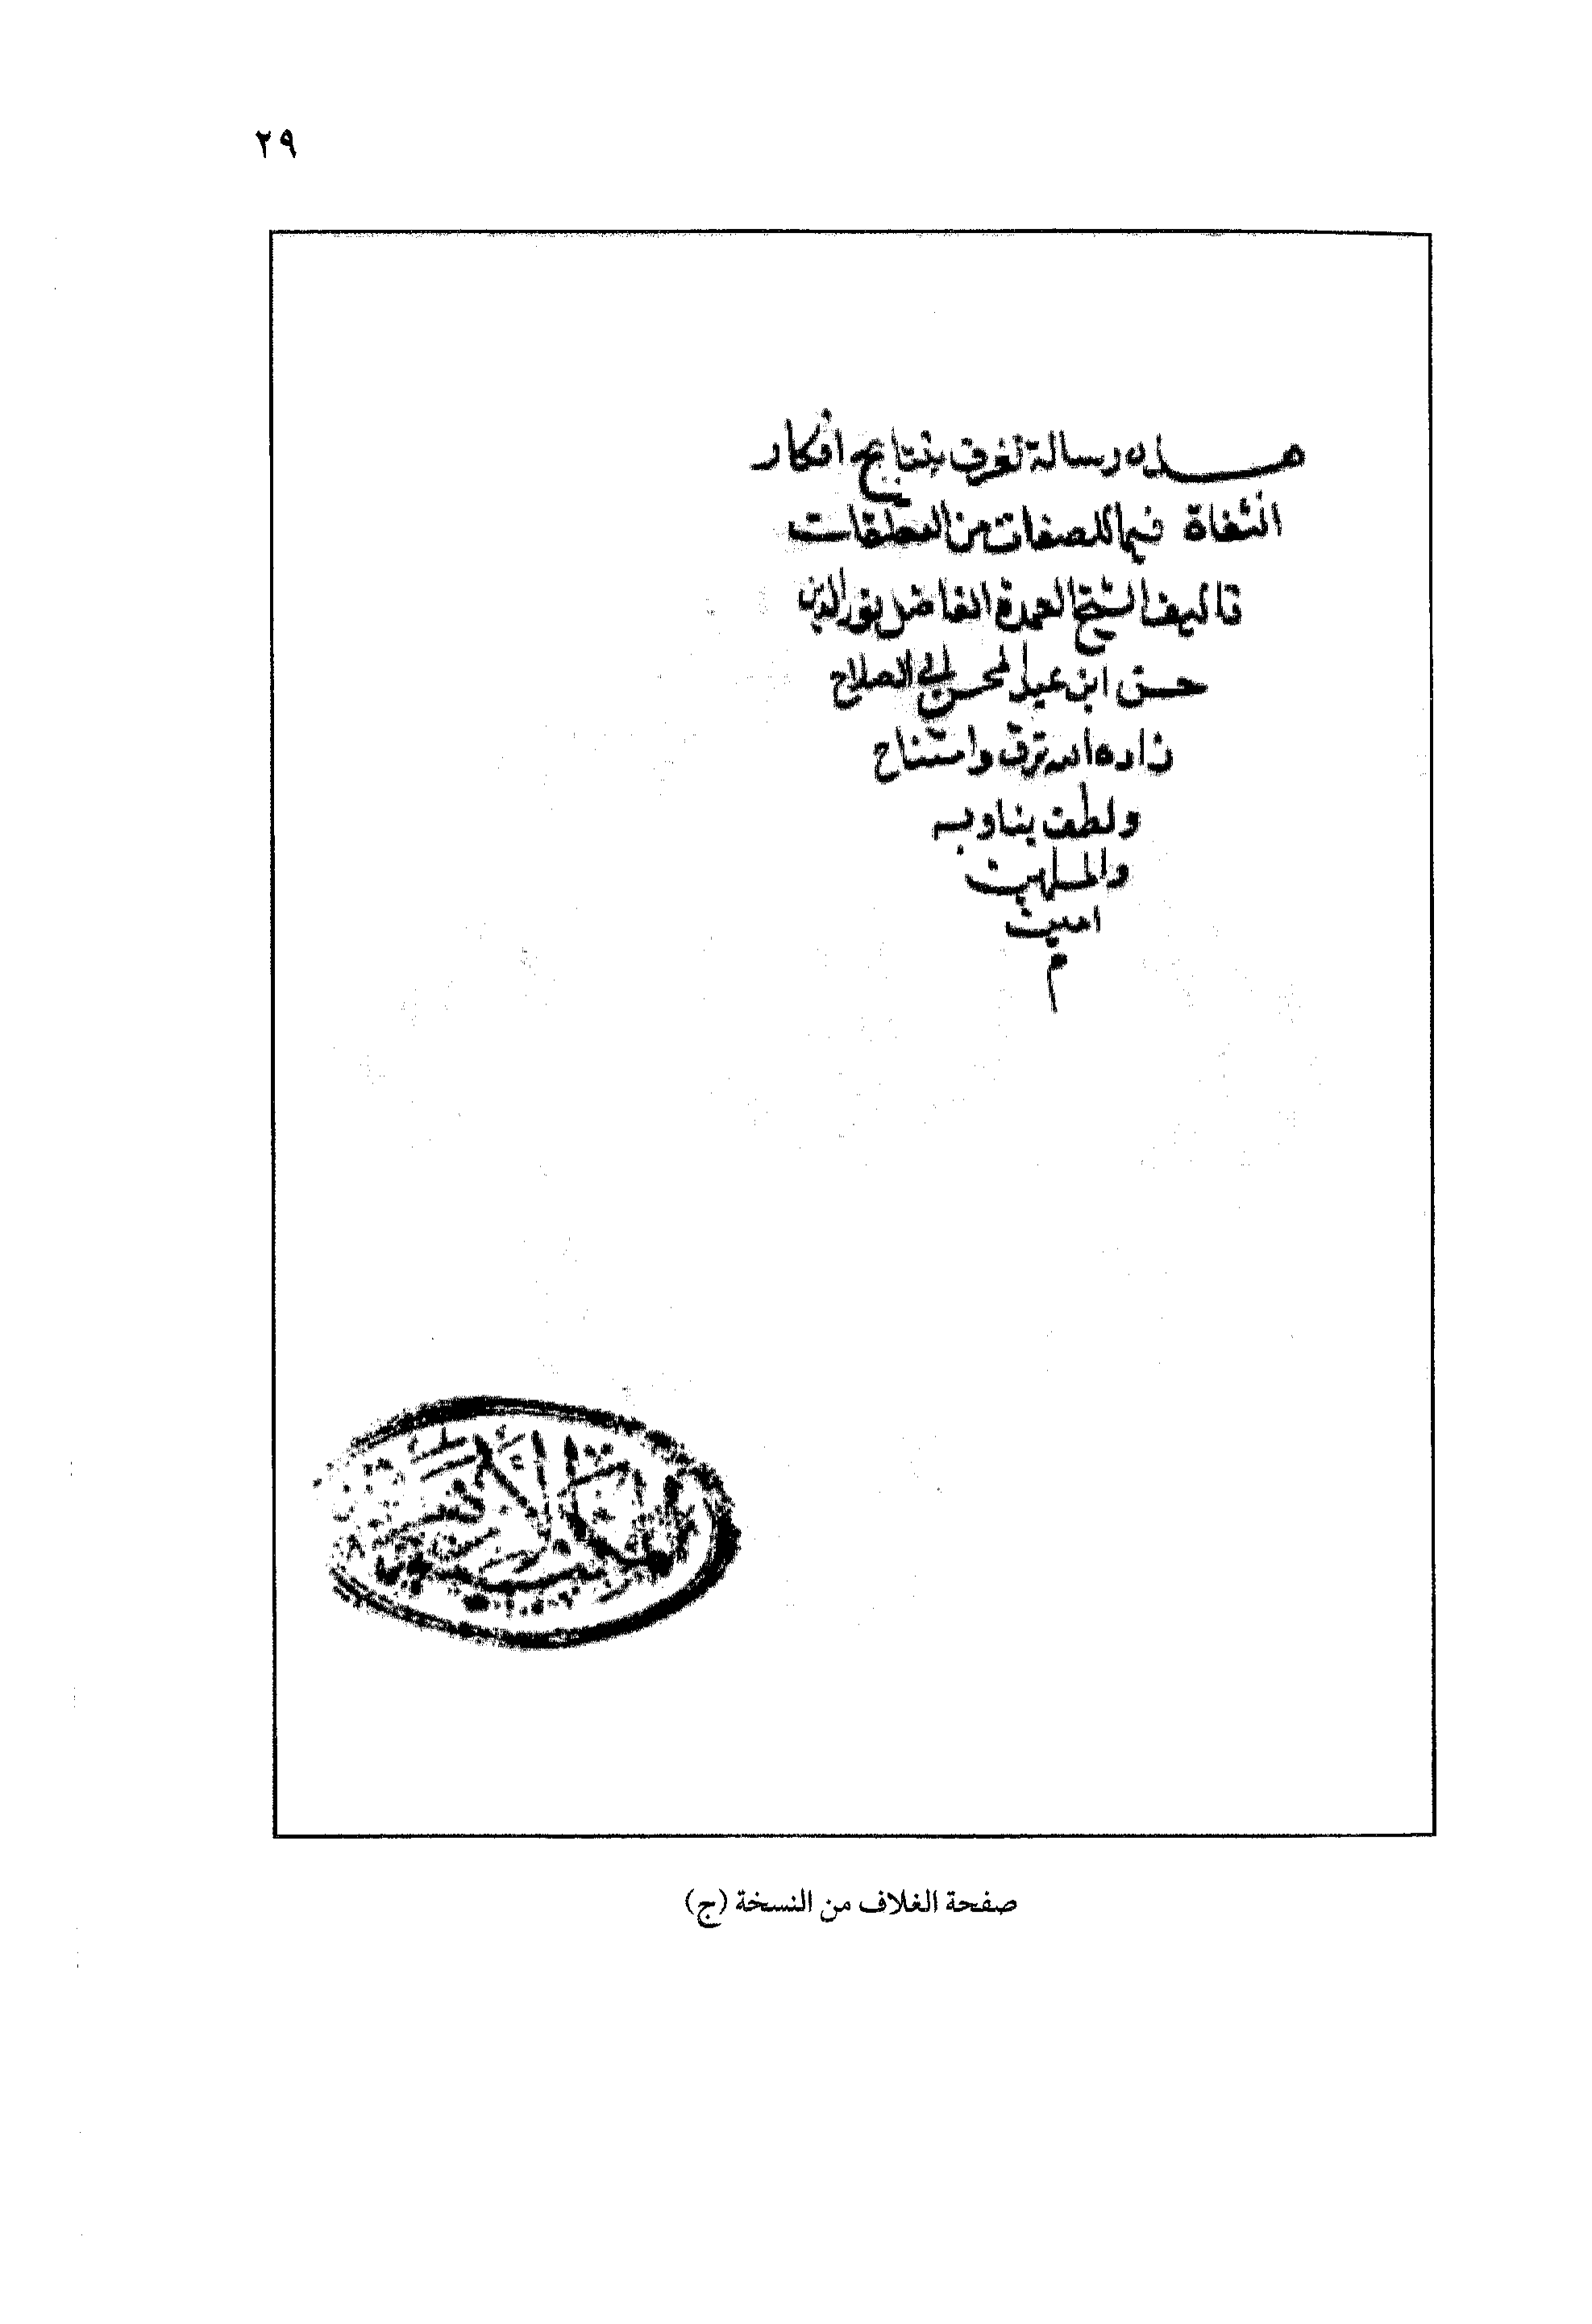 ٢٩
هذه رسالة تعرف بنتايج أفكار
الثقاة فيما للصفات من التعلقات
تاليف الشيخ العمدة الفاضل نور الدين
حسن ابن عبد المحسن ابي الصلاح
زاده الله ترق وامتناح
ولطف بنا وبه
والمسلمين
امين
م
صفحة الغلاف من النسخة (ج)